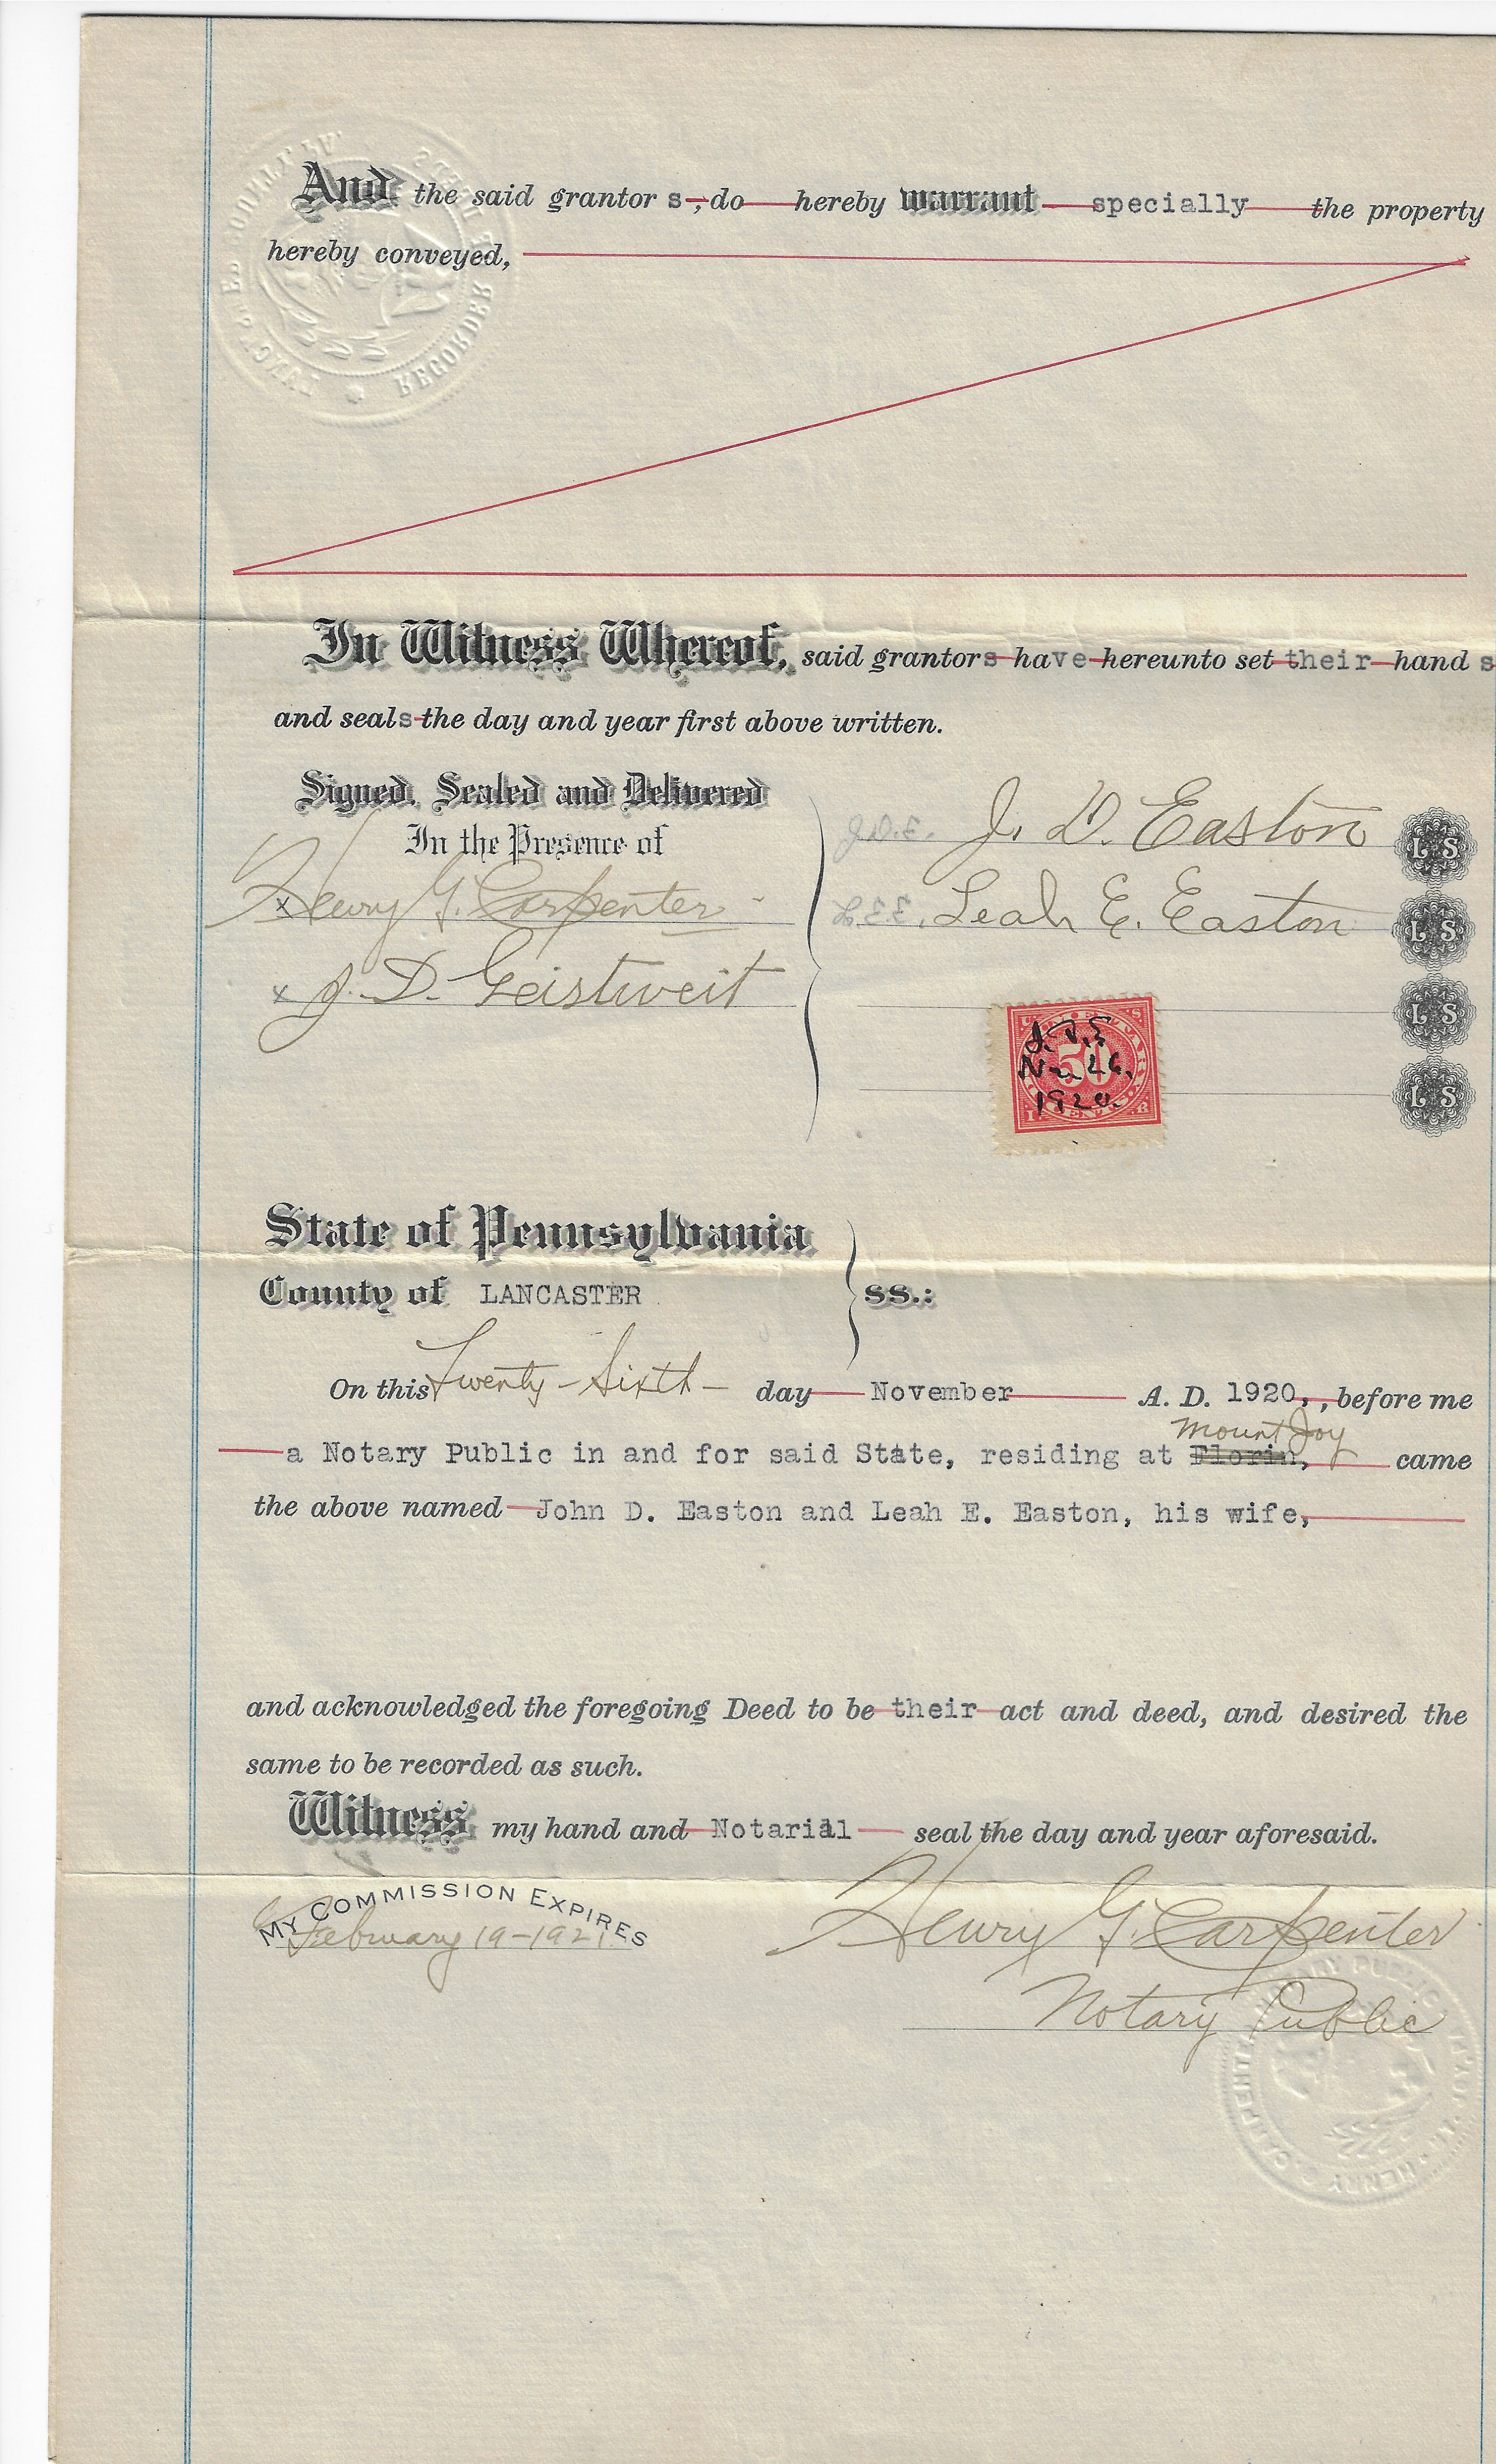 And the said grantor s, do hereby warrant specially the property
hereby conveyed,
In Witness Whereof, said grantors have hereunto set their hand s
and seals the day and year first above written.
Signed, Sealed and Delivered
In the Presence of
J.D.E. J. D. Easton L S
x Henry G. Carpenter
L.E.E. Leah E. Easton L S
x J. D. Geistweit
L S
L S
J.D.E
Nov 26.
1920.
50
CENTS
State of Pennsylvania
County of LANCASTER ss.:
On this Twenty-Sixth- day November A. D. 1920, , before me
Mount Joy
a Notary Public in and for said State, residing at Florin, came
the above named John D. Easton and Leah E. Easton, his wife,
and acknowledged the foregoing Deed to be their act and deed, and desired the
same to be recorded as such.
Witness my hand and Notarial seal the day and year aforesaid.
MY COMMISSION EXPIRES
February 19-1921
Henry G. Carpenter
Notary Public
RECORDER
NOTARY PUBLIC
HENRY G. CARPENTER